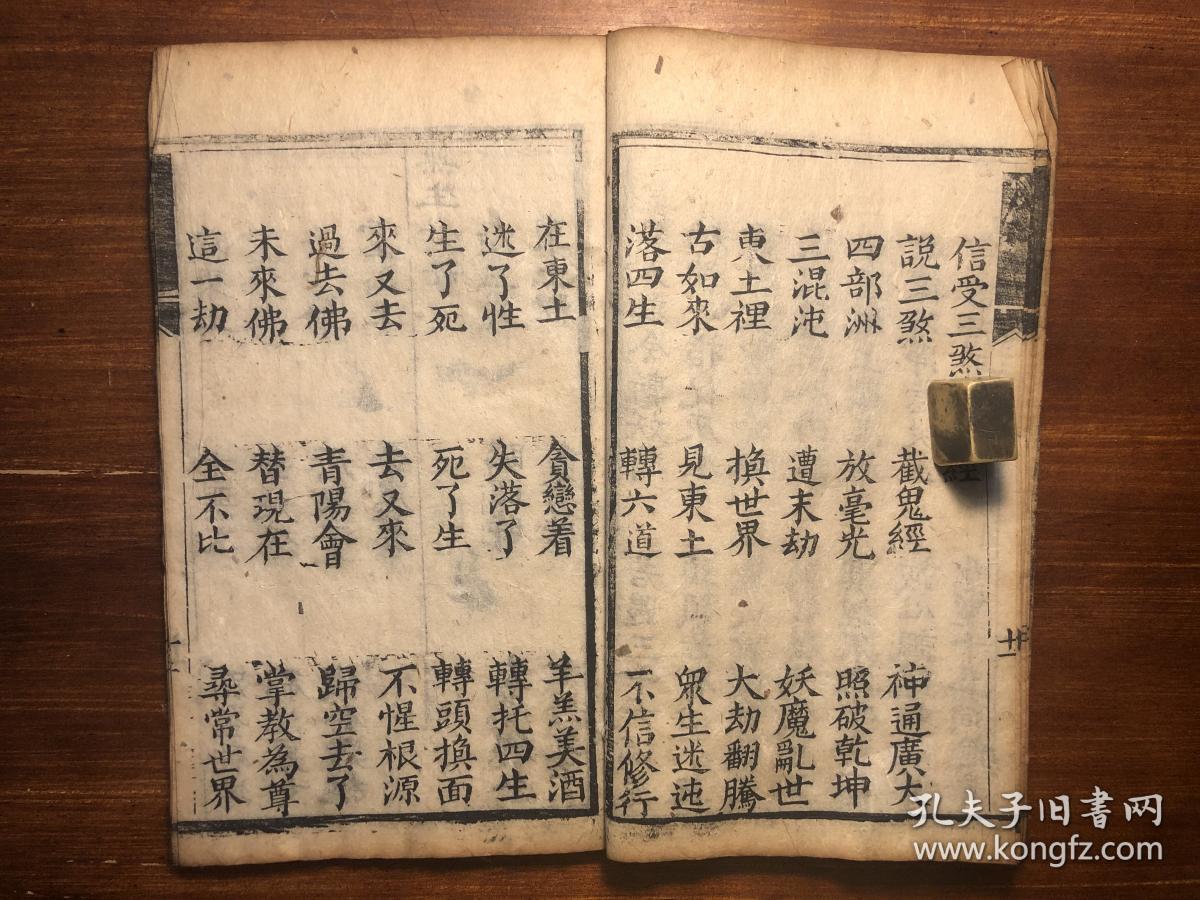 信受三煞 經
說三煞 截鬼經 神通廣大
四部洲 放毫光 照破乾坤
三混沌 遭末劫 妖魔亂世
東土裡 換世界 大劫翻騰
古如來 見東土 眾生迷迍
落四生 轉六道 不信修行
在東土 貪戀着 羊羔美酒
迷了性 失落了 轉托四生
生了死 死了生 轉頭換面
來又去 去又來 不惺根源
過去佛 青陽會 歸空去了
未來佛 替現在 掌教為尊
這一劫 全不比 尋常世界
十一
孔夫子旧書网
www.kongfz.com